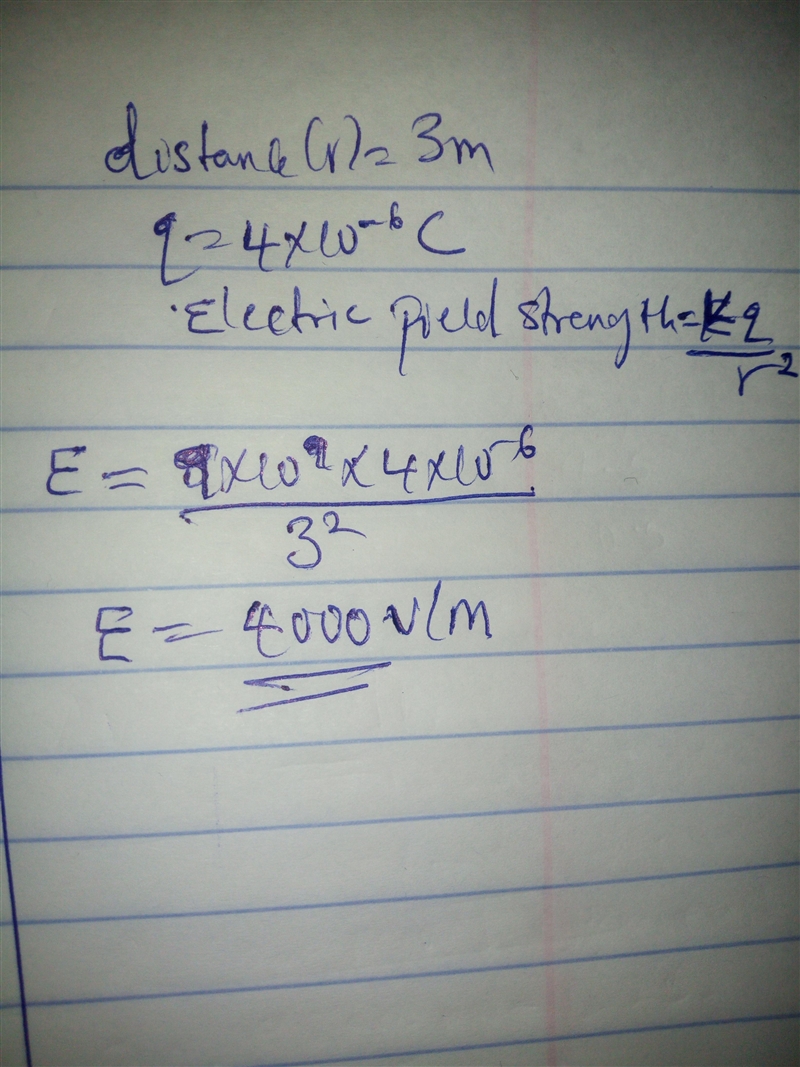 distance(r) = 3m
q = 4×10⁻⁶ C
Electric field strength = Kq/r²
E = 9×10⁹ × 4×10⁻⁶/3²
E = 4000 V/m